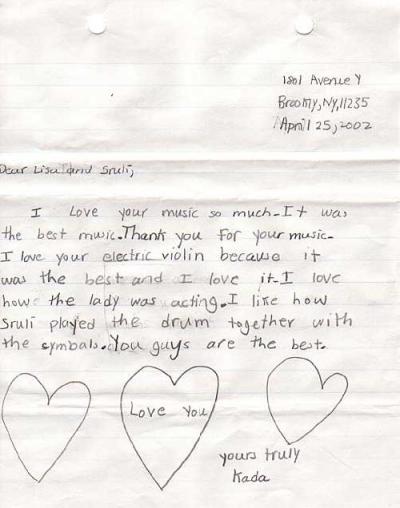 1801 Avenue Y
Broomy, NY, 11235
April 25, 2002
Dear Lisa and Sruli,
I Love your music so much. It was
the best music. Thank you for your music.
I love your electric violin because it
was the best and I love it. I love
how the lady was acting. I like how
Sruli played the drum together with
the symbals. You guys are the best.
Love You
yours truly
Kada